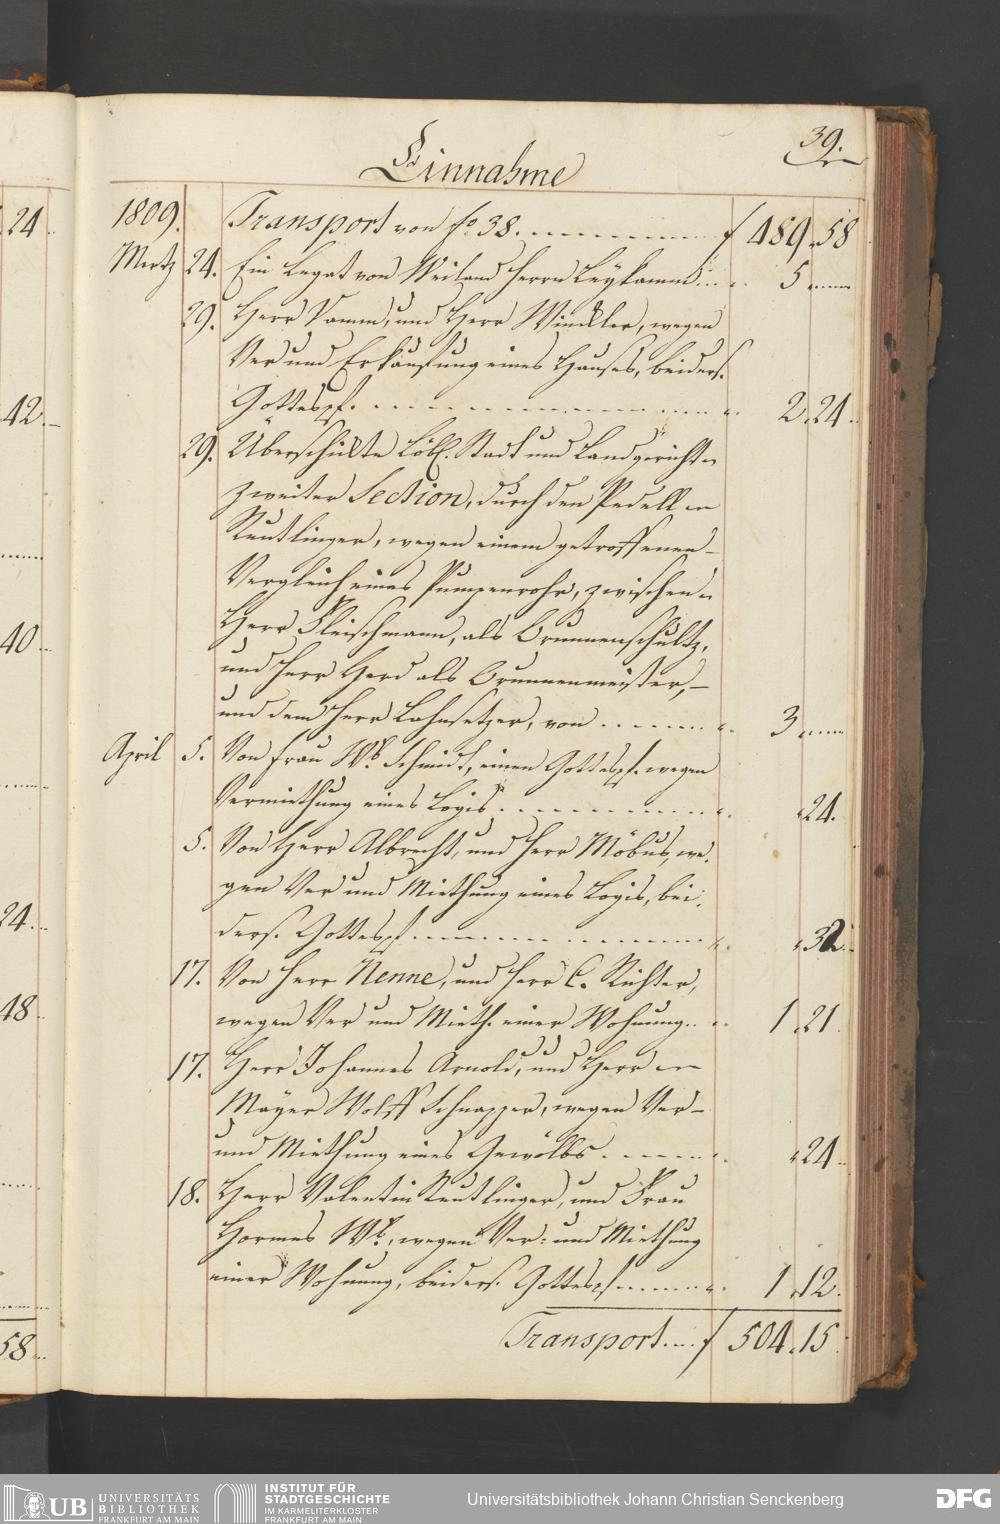 39.
Einnahme
1809. Transport von fo 38. f 489. 58
Mertz 24. Ein Legat von Weiland Herrn Leykamm 5
29. Herr Damm, und Herr Winckler, wegen
Ver und Erkäufung eines Hauses, beiders.
Gottespf. 2. 24.
29. Überschickte Löbl. Stadt und Landgericht
zweiter Section, durch den Pedell
Reutlinger, wegen einem getroffenen
Vergleich eines Pumpenrohr, zwischen
Herr Fleischmann, als Brunnenschultz,
und Herr Herd als Brunnenmeister,
und dem Herr Lohnsetzer, von 3
April 5. Von Frau Wb. Schmidt, einen Gottespf. wegen
Vermiethung eines Logis 24.
5. Von Herr Albrecht, und Herr Möbus, we-
gen Ver und Miethung eines Logis, bei-
ders. Gottespf 32.
17. Von Herr Nenne, und Herr C. Richter,
wegen Ver und Mieth. einer Wohnung 1. 21.
17. Herr Johannes Arnold, und Herr
Mayer Wolff Schnapper, wegen Ver-
und Miethung eines Gewölbs 24
18. Herr Valentin Reutlinger, und Frau
Hormes Wb., wegen Ver- und Miethung
einer Wohnung, beiders. Gottespf 1. 12.
Transport f 504. 15
24
42.
40
24.
48
58
UB UNIVERSITÄTS
BIBLIOTHEK
FRANKFURT AM MAIN
INSTITUT FÜR
STADTGESCHICHTE
IM KARMELITERKLOSTER
FRANKFURT AM MAIN
Universitätsbibliothek Johann Christian Senckenberg
DFG